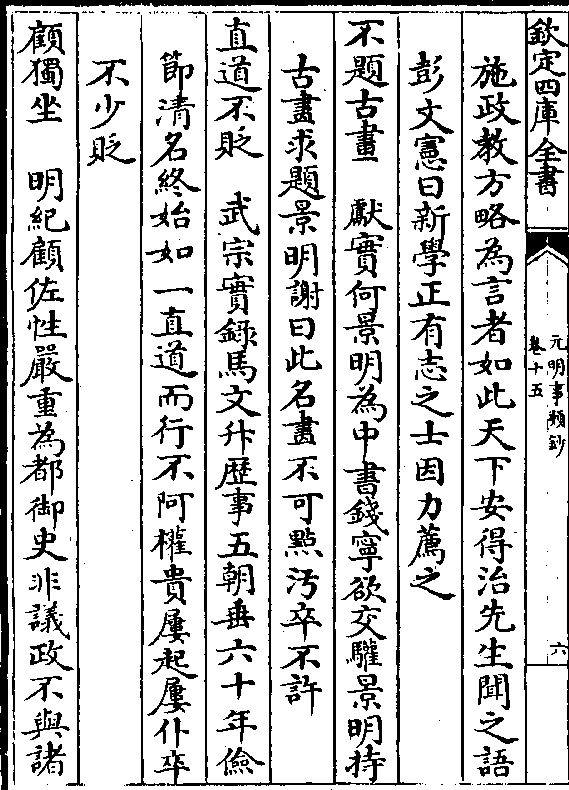 欽定四庫全書
元明事類鈔
卷十五
六
施政教方略為言者如此天下安得治先生聞之語
彭文憲曰新學正有志之士因力薦之
不題古畫　獻實何景明為中書錢寧欲交驩景明持
古畫求題景明謝曰此名畫不可點汚卒不許
直道不貶　武宗實錄馬文升歴事五朝垂六十年儉
節清名終始如一直道而行不阿權貴屢起屢仆卒
不少貶
顧獨坐　明紀顧佐性嚴重為都御史非議政不與諸